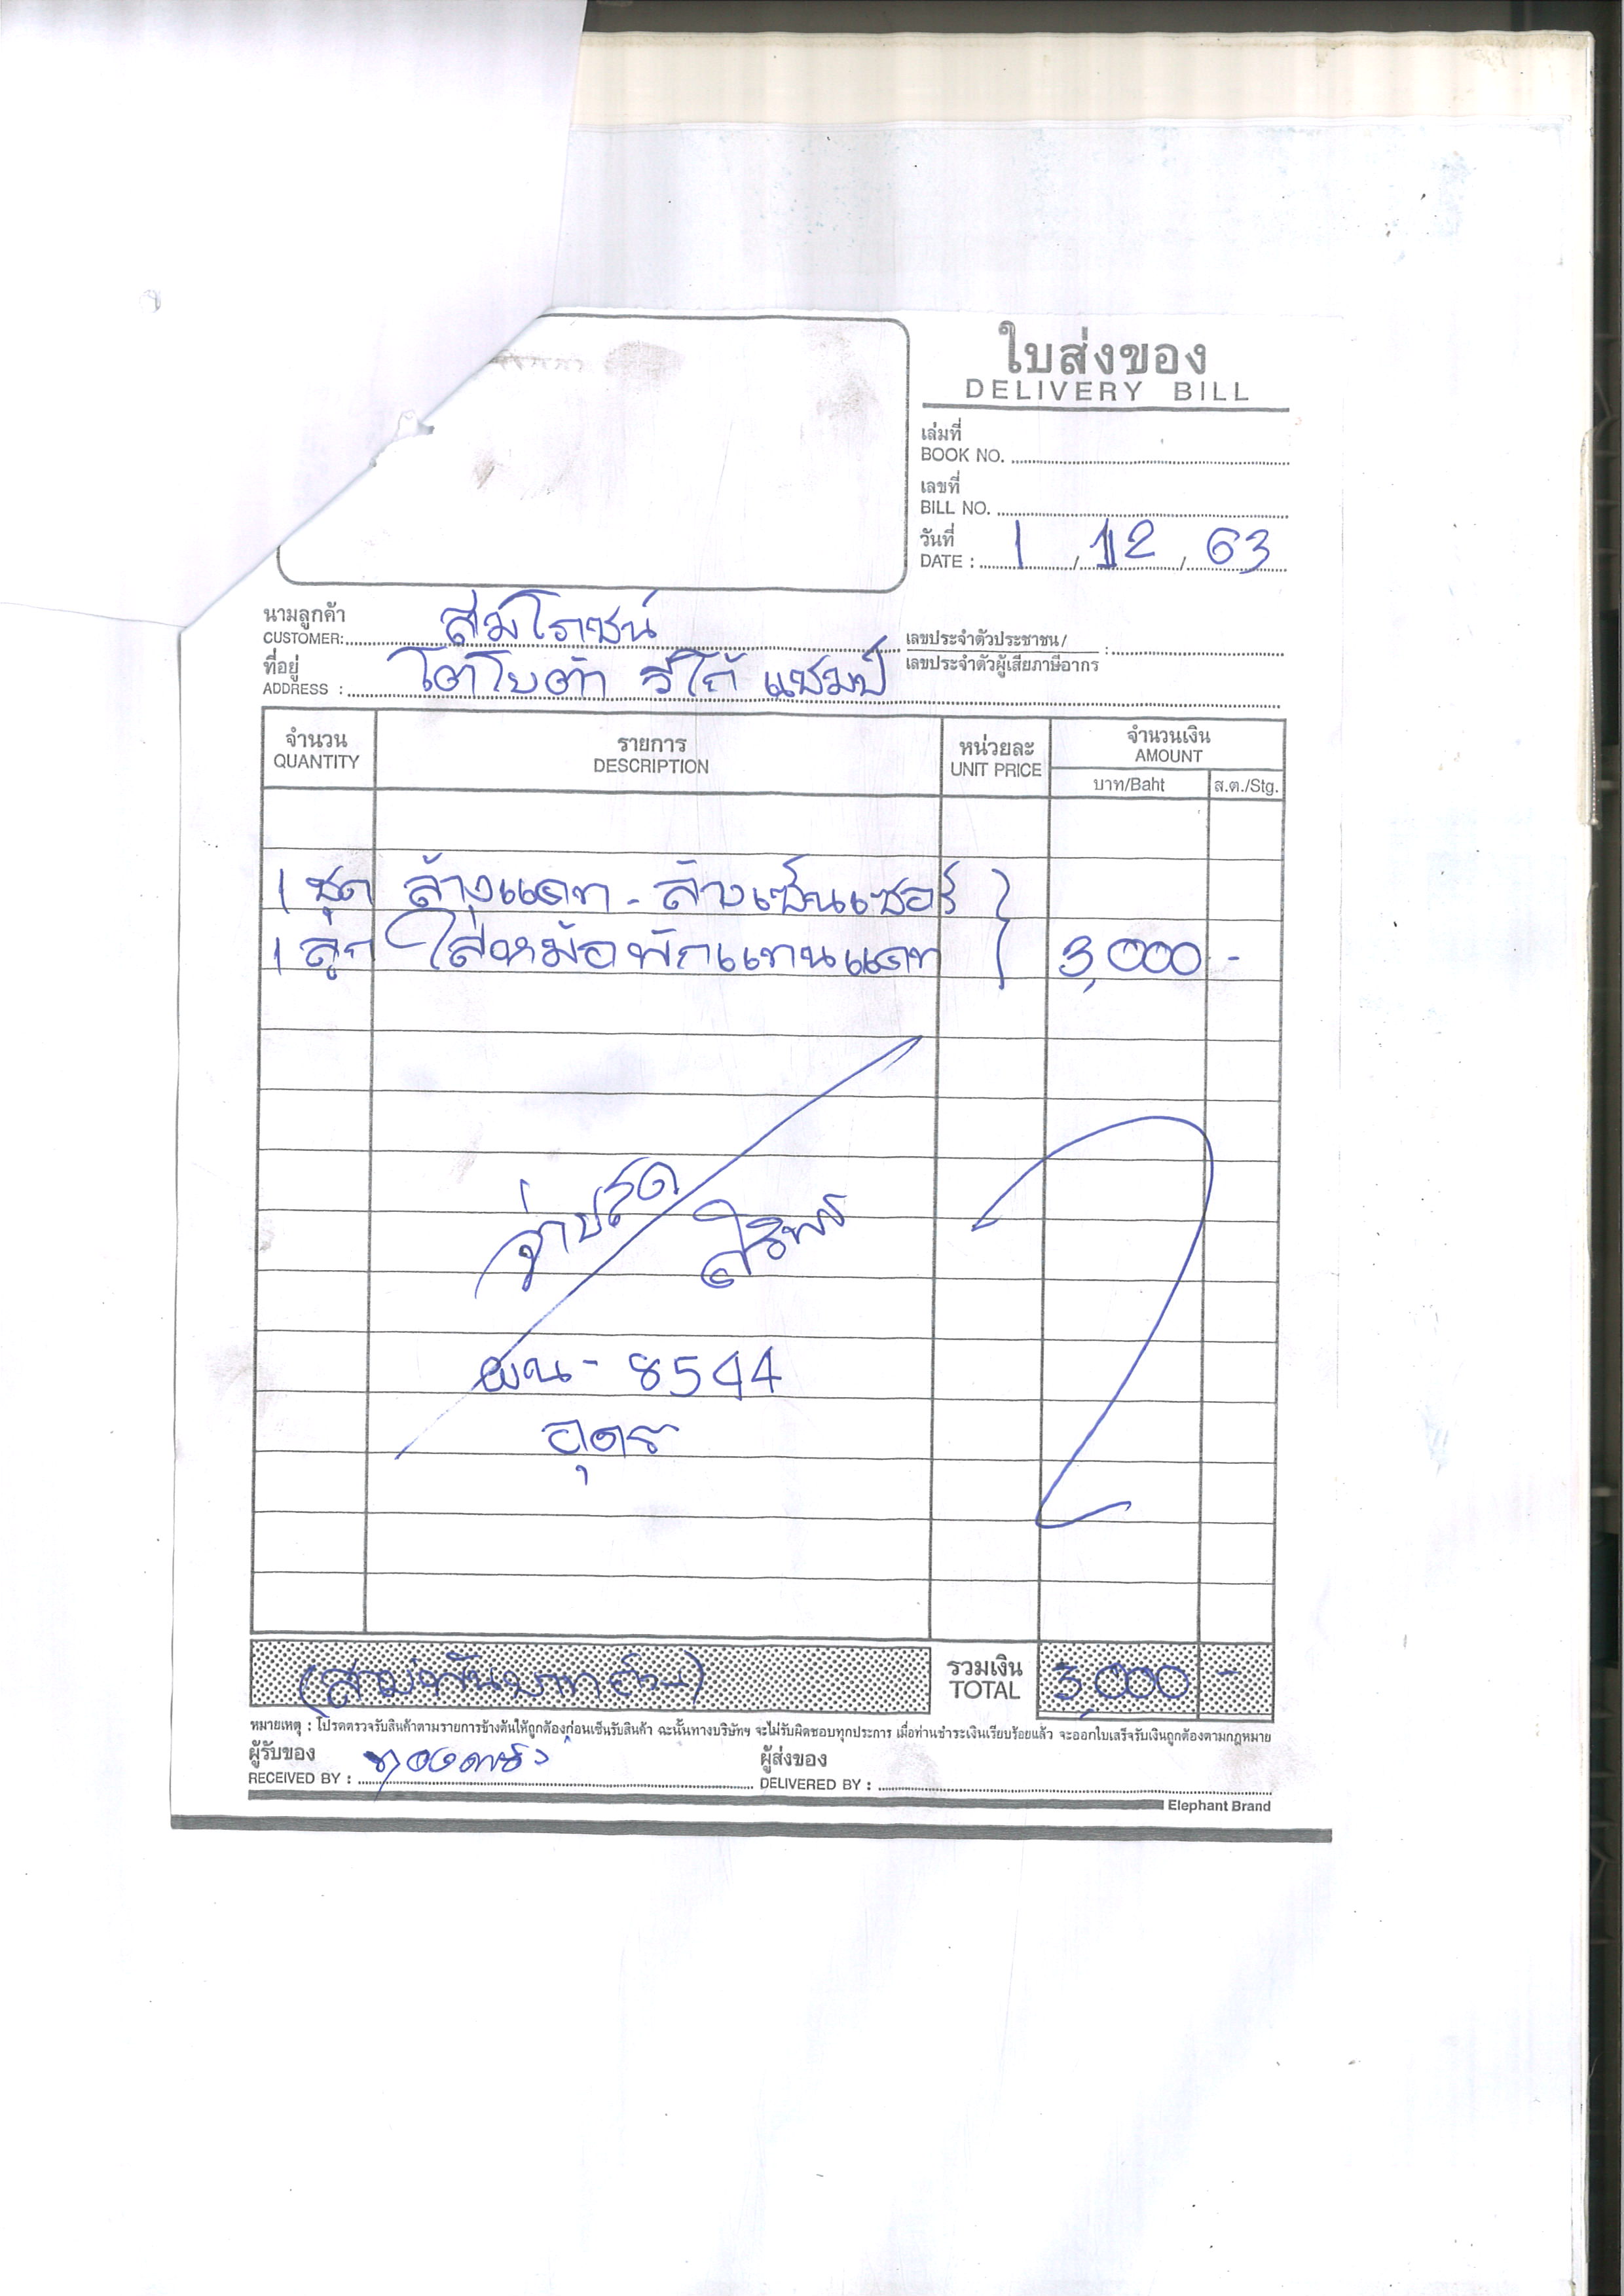 ใบส่งของ
DELIVERY BILL
เล่มที่
BOOK NO.
เลขที่
BILL NO.
วันที่
DATE : 1 / 12 / 63
นามลูกค้า
CUSTOMER: สมโภชน์
เลขประจำตัวประชาชน/
เลขประจำตัวผู้เสียภาษีอากร :
ที่อยู่
ADDRESS : โตโยต้า วีโก้ แชมป์
จำนวน รายการ หน่วยละ จำนวนเงิน
QUANTITY DESCRIPTION UNIT PRICE AMOUNT
บาท/Baht ส.ต./Stg.
1 ชุด ล้างแคท - ล้างเซ็นเซอร์
1 ลูก ใส่หม้อพักแทนแคท 3,000 -
8544
อุดร
(สามพันบาทถ้วน) รวมเงิน
TOTAL 3,000 -
หมายเหตุ : โปรดตรวจรับสินค้าตามรายการข้างต้นให้ถูกต้องก่อนเซ็นรับสินค้า ฉะนั้นทางบริษัทฯ จะไม่รับผิดชอบทุกประการ เมื่อท่านชำระเงินเรียบร้อยแล้ว จะออกใบเสร็จรับเงินถูกต้องตามกฎหมาย
ผู้รับของ ผู้ส่งของ
RECEIVED BY : DELIVERED BY :
Elephant Brand